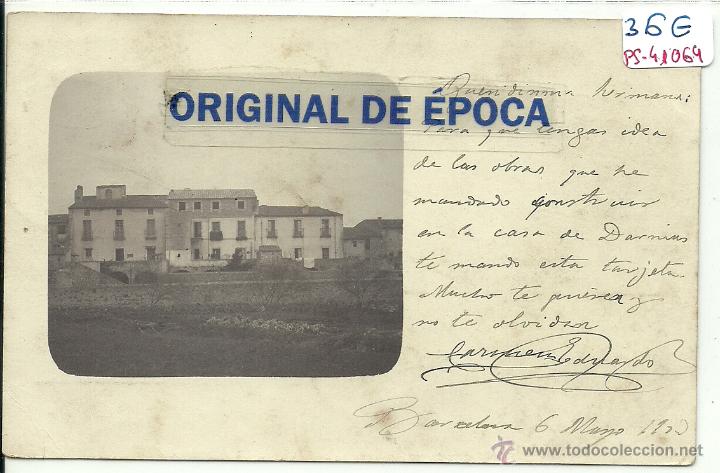 36€
PS-41064
ORIGINAL DE EPOCA
Queridisima hermana:
Para que tengas idea
de las obras que he
mandado construir
en la casa de Darnius
te mando esta tarjeta.
Mucho te quieren y
no te olvidan
Carmen Eduardo
Barcelona 6 Mayo
todocoleccion.net